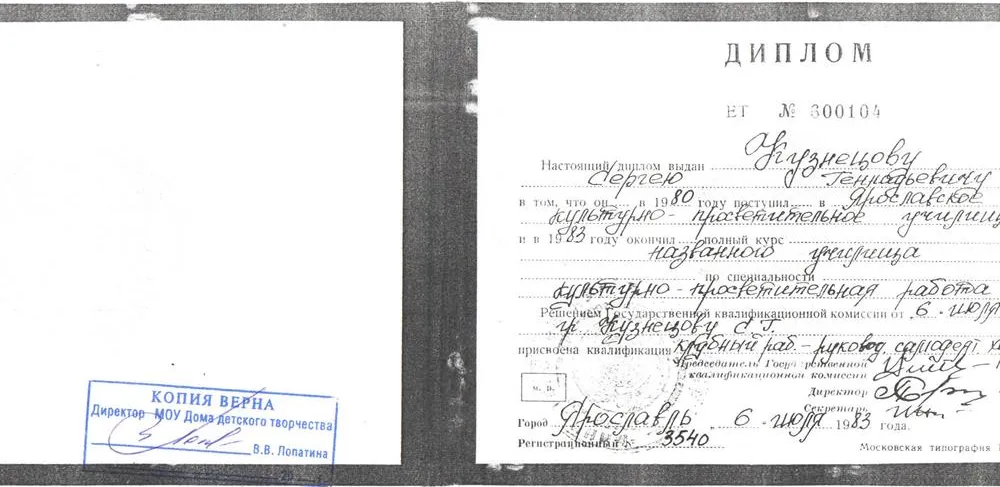 КОПИЯ ВЕРНА
Директор МОУ Дома детского творчества
В.В. Лопатина
ДИПЛОМ
ЕТ № 300104
Настоящий диплом выдан Кузнецову
Сергею Геннадьевичу
в том, что он в 1980 году поступил в Ярославское
культурно-просветительное училищ
и в 1983 году окончил полный курс
названного училища
по специальности
культурно-просветительная работа
Решением Государственной квалификационной комиссии от 6 июля
гр. Кузнецову С. Г.
присвоена квалификация клубный раб.- руковод. самодеят.
Председатель Государственной
квалификационной комиссии
м. п.
Директор
Секретарь
Город Ярославль, 6 июля 1983 года.
Регистрационный № 3540
Московская типография